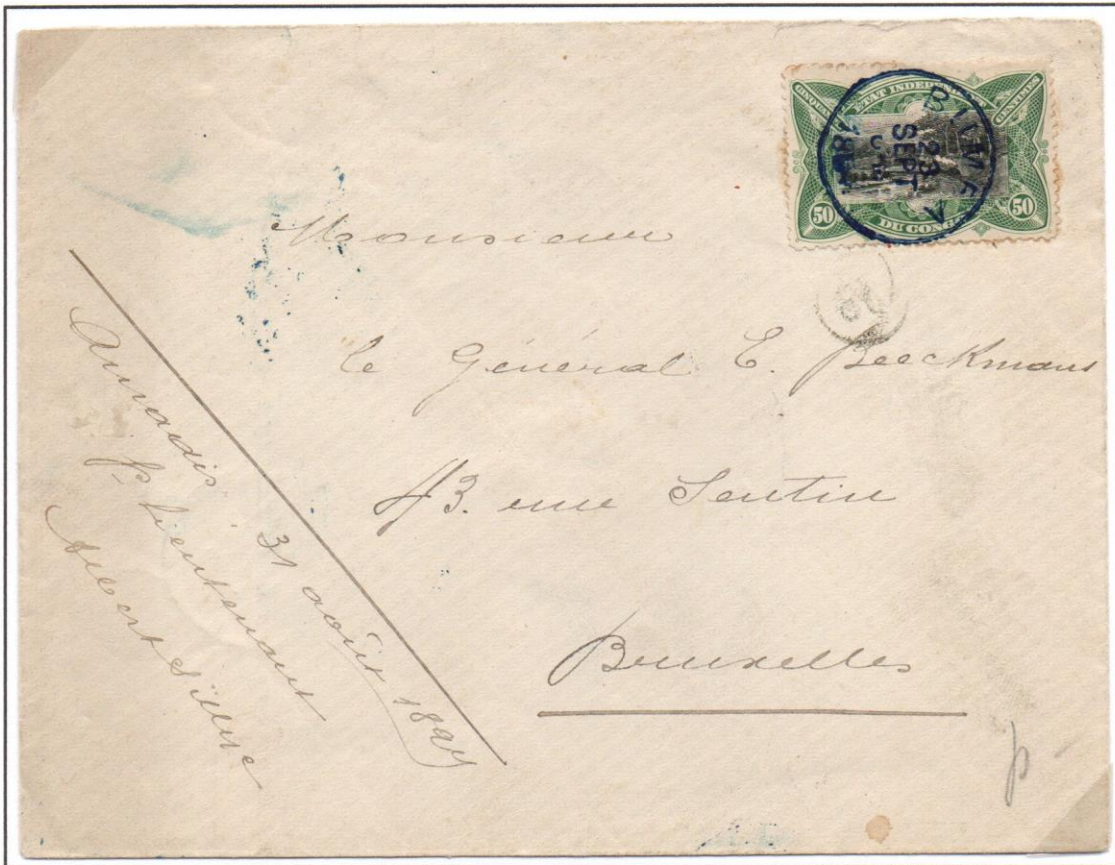 CINQUANTE ETAT INDEPENDANT CENTIMES
50 DU CONGO 50
23
SEPT
Monsieur
le Général E. Beeckmans
43. rue Sentin
Bruxelles
31 août 189
Lieutenant
Albert